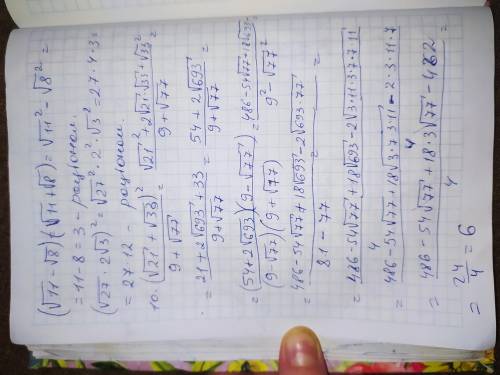 (√11 - √8)(√11 + √8) = √11² - √8² =
= 11 - 8 = 3 - рационал.
(√27 · 2√3)² = √27² · 2² · √3² = 27 · 4 · 3 =
= 27 · 12 - рационал.
10. (√21 + √33)² / 9 + √77 = √21² + 2√21 · √33 + √33² / 9 + √77 =
= 21 + 2√693 + 33 / 9 + √77 = 54 + 2√693 / 9 + √77 =
= (54 + 2√693)(9 - √77) / (9 - √77)(9 + √77) = 486 - 54√77 + 18√693 - / 9² - √77²
= 486 - 54√77 + 18√693 - 2√693 · 77 / 81 - 77 =
= 486 - 54√77 + 18√693 - 2√3 · 11 · 3 · 7 · 7 · 11 / 4
= 486 - 54√77 + 18√3 · 7 · 3 · 11 - 2 · 3 · 11 · 7 / 4
= 486 - 54√77 + 18 · 3√77 - 462 / 4
= 24 / 4 = 6